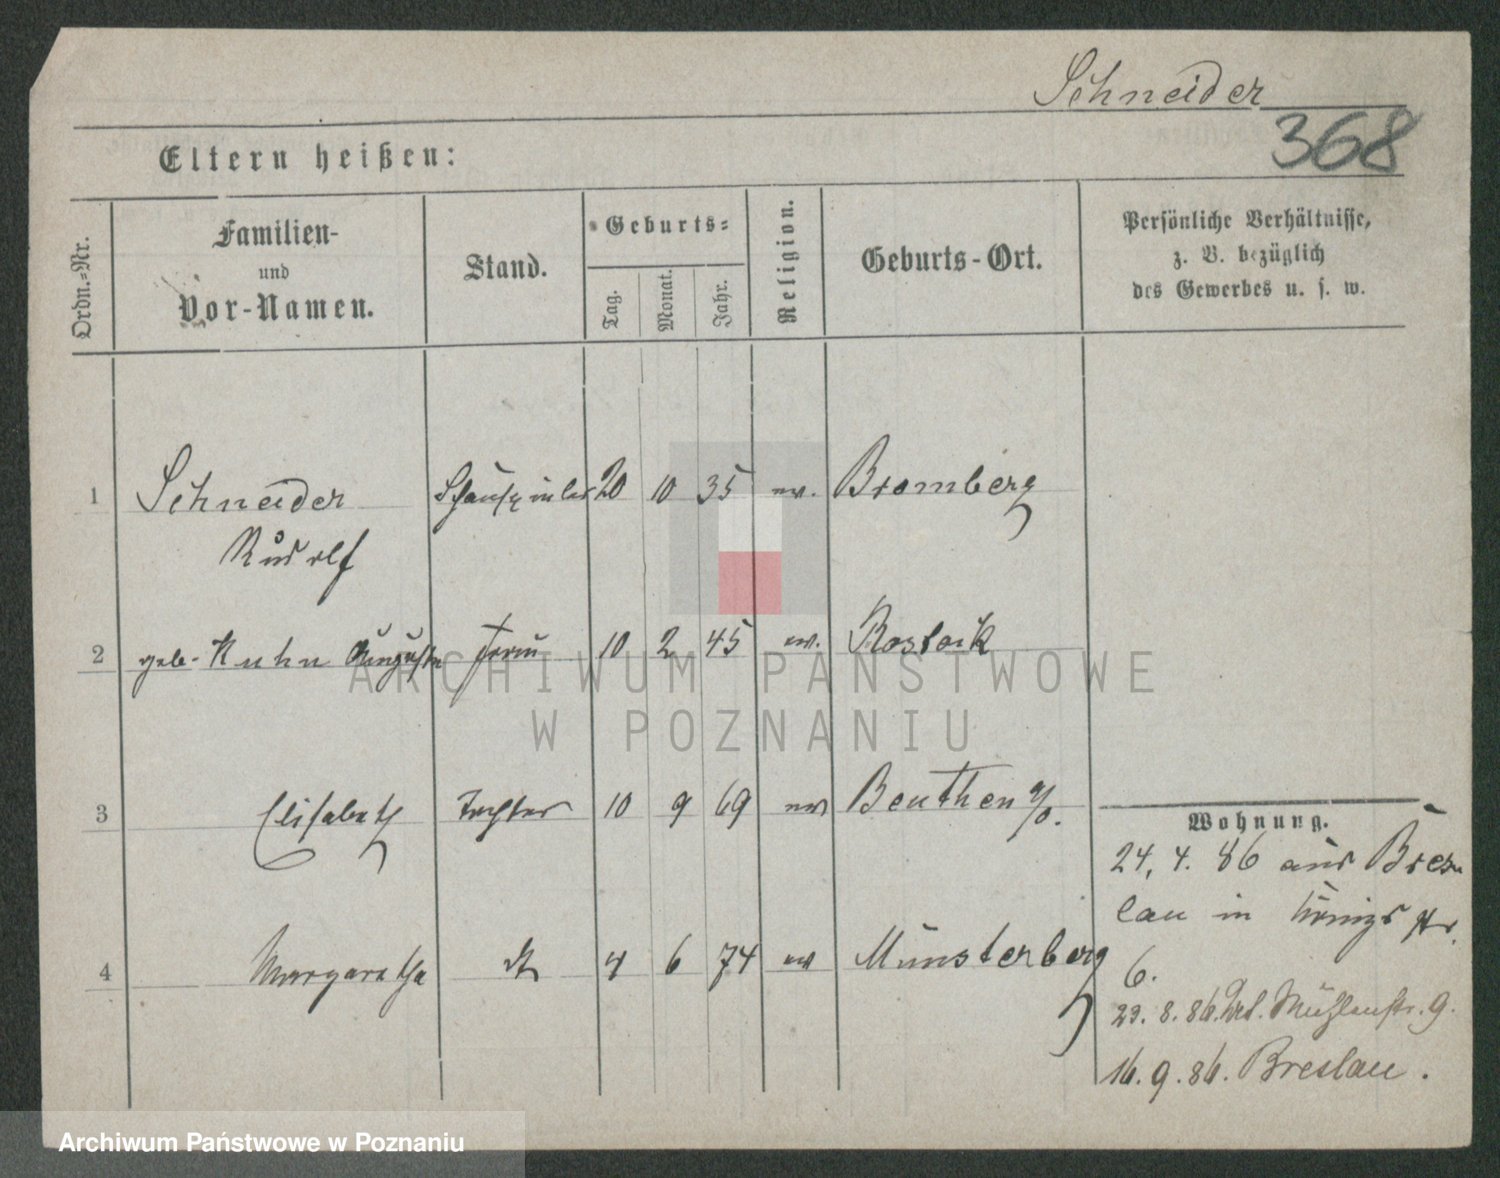 Schneider
368
Eltern heißen:
Ordn.-Nr.
Familien-
und
Vor-Namen.
Stand.
Geburts-
Tag.
Monat.
Jahr.
Religion.
Geburts-Ort.
Persönliche Verhältnisse,
z. B. bezüglich
des Gewerbes u. s. w.
1 Schneider Schauspieler 20 10 35 ev. Bromberg
Rudolf
2 geb. Kuhn Auguste Frau 10 2 45 ev. Rostock
3 Elisabeth Tochter 10 9 69 ev Beuthen
Wohnung.
24. 4. 86 aus Bres-
lau in Königsstr.
6.
4 Margarethe dt 4 6 74 ev Münsterberg
29. 8. 86. Mühlenstr. 9.
16. 9. 86. Breslau.
ARCHIWUM PAŃSTWOWE
W POZNANIU
Archiwum Państwowe w Poznaniu